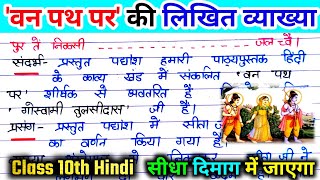 'वन पथ पर' की लिखित व्याख्या
पुर तें निकसी ............ जल च्वै।
संदर्भ- प्रस्तुत पद्यांश हमारी पाठ्यपुस्तक हिंदी
के काव्य खंड में संकलित 'वन पथ
पर' शीर्षक से अवतरित हैं
'गोस्वामी तुलसीदास' जी हैं।
प्रसंग- प्रस्तुत पद्यांश में सीता
का वर्णन किया गया है
Class 10th Hindi सीधा दिमाग में जाएगा